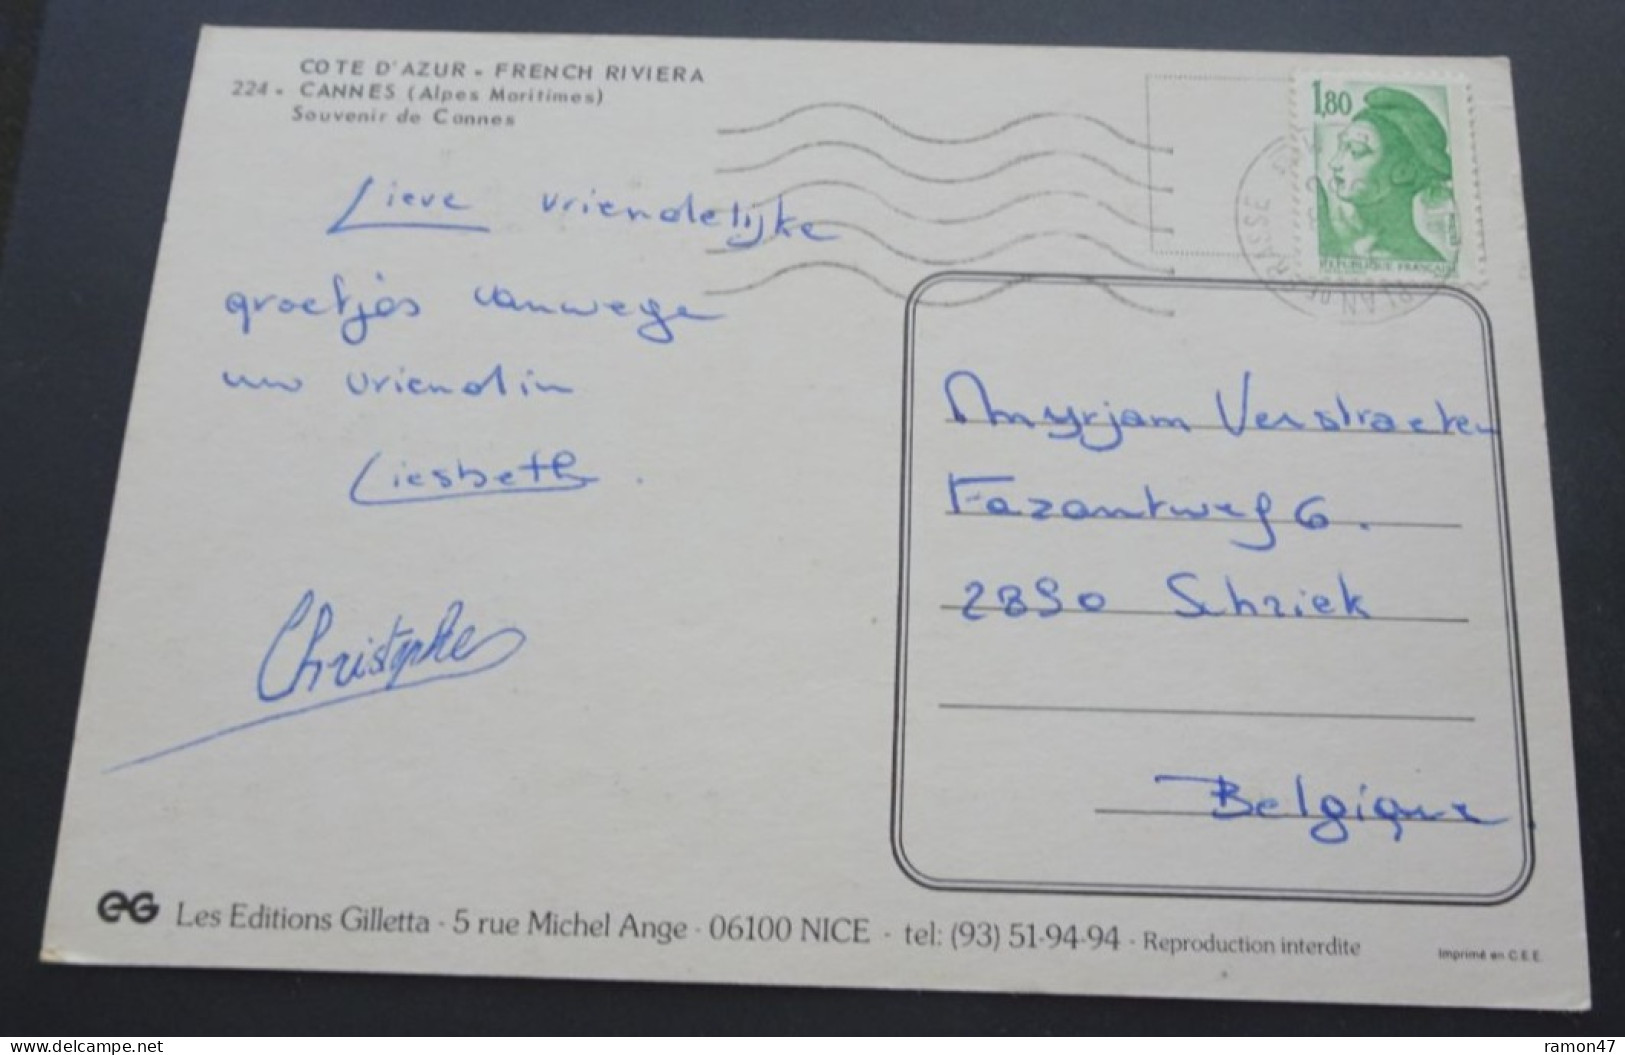 COTE D'AZUR - FRENCH RIVIERA
224 - CANNES (Alpes Maritimes)
Souvenir de Cannes
1,80
REPUBLIQUE FRANCAISE
PLAN DE GRASSE
Lieve vriendelijke
groetjes vanwege
uw vriendin
Liesbeth.
Christophe
Myrjam Verstraeten
Fazantweg 6.
2890 Schriek
Belgique
eG Les Editions Gilletta - 5 rue Michel Ange - 06100 NICE - tel: (93) 51-94-94 - Reproduction interdite
Imprimé en C.E.E.
delcampe.net
ramon47